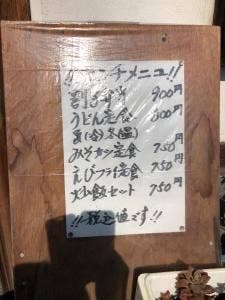 !!ランチメニュー!!
割子弁当 900円
うどん定食 800円
あ(冷)冬(温)
みそカツ定食 750円
えびフライ定食 750円
炒飯セット 750円
!!税込値です!!